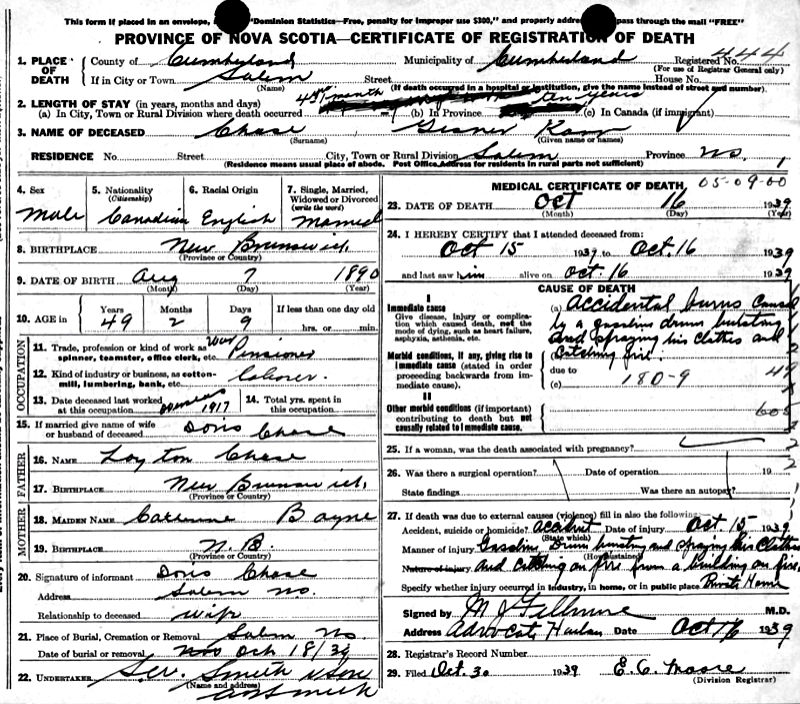 This form if placed in an envelope, "Dominion Statistics—Free, penalty for improper use $300," and properly addre pass through the mail "FREE"
PROVINCE OF NOVA SCOTIA—CERTIFICATE OF REGISTRATION OF DEATH
1. PLACE OF DEATH County of Cumberland Municipality of Cumberland Registered No. 444
(For use of Registrar General only)
If in City or Town Salem Street House No.
(Name) (If death occurred in a hospital or institution, give the name instead of street and number)
2. LENGTH OF STAY (in years, months and days)
(a) In City, Town or Rural Division where death occurred month (b) In Province ten years (c) In Canada (if immigrant)
3. NAME OF DECEASED Chase Gesner
(Surname) (Given name or names)
RESIDENCE No. Street City, Town or Rural Division Salem Province N.S. 1
(Residence means usual place of abode. Post Office Address for residents in rural parts not sufficient)
4. Sex Male
5. Nationality (Citizenship) Canadian
6. Racial Origin English
7. Single, Married, Widowed or Divorced (write the word) Married
8. BIRTHPLACE New Brunswick
(Province or Country)
9. DATE OF BIRTH Aug 7 1890
(Month) (Day) (Year)
10. AGE in Years 49 Months 2 Days 9 If less than one day old hrs. or min.
OCCUPATION
11. Trade, profession or kind of work as spinner, teamster, office clerk, etc. War Pensioner
12. Kind of industry or business, as cotton-mill, lumbering, bank, etc. Laborer
13. Date deceased last worked at this occupation 1917
14. Total yrs. spent in this occupation
15. If married give name of wife or husband of deceased Doris Chase
FATHER
16. NAME Layton Chase
17. BIRTHPLACE New Brunswick
(Province or Country)
MOTHER
18. MAIDEN NAME Bayne
19. BIRTHPLACE N.B.
(Province or Country)
20. Signature of informant Doris Chase
Address Salem N.S.
Relationship to deceased wife
21. Place of Burial, Cremation or Removal Salem N.S.
Date of burial or removal Oct 18/39
22. UNDERTAKER Smith
(Name and address)
MEDICAL CERTIFICATE OF DEATH 05-09-00
23. DATE OF DEATH Oct 16 1939
(Month) (Day) (Year)
24. I HEREBY CERTIFY that I attended deceased from:
Oct 15 1939 to Oct. 16 1939
and last saw him alive on Oct. 16 1939
CAUSE OF DEATH
I
Immediate cause
Give disease, injury or complication which caused death, not the mode of dying, such as heart failure, asphyxia, asthenia, etc.
(a) Accidental burns caused
by a gasoline drum bursting
and spraying his clothes and
catching fire.
Morbid conditions, if any, giving rise to immediate cause (stated in order proceeding backwards from immediate cause).
due to 49
(c) 180-9
II
Other morbid conditions (if important) contributing to death but not causally related to immediate cause.
25. If a woman, was the death associated with pregnancy?
26. Was there a surgical operation? Date of operation 19
State findings Was there an autopsy?
27. If death was due to external causes (violence) fill in also the following:
Accident, suicide or homicide? accident Date of injury Oct 15 1939
(State which)
Manner of injury Gasoline Drum bursting and spraying his clothes
(How sustained)
Nature of injury and catching on fire from a building on fire.
Specify whether injury occurred in industry, in home, or in public place Private Home
Signed by M J Fillmore M.D.
Address Advocate Harbor Date Oct 16 1939
28. Registrar's Record Number
29. Filed Oct. 30 1939 E. C. Moore
(Division Registrar)